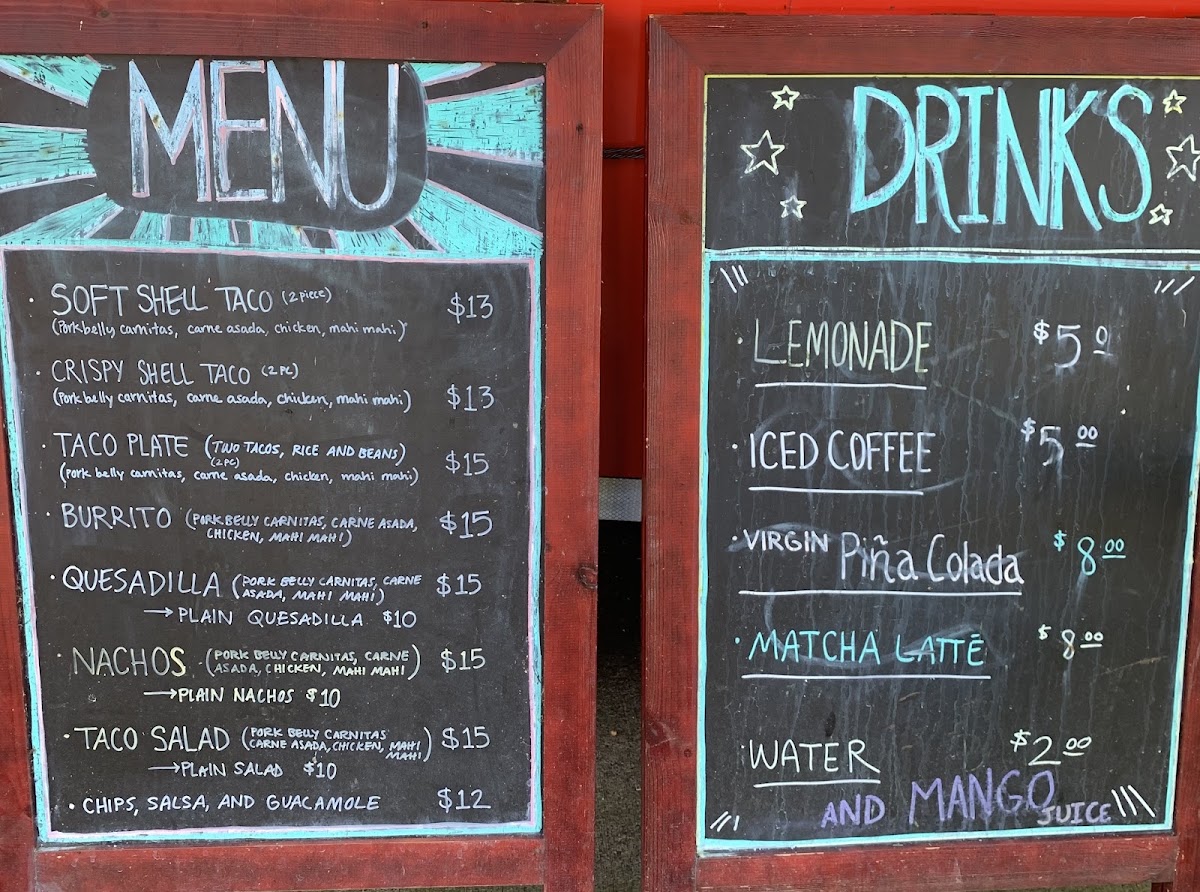 MENU
· SOFT SHELL TACO (2 piece) $13
(Pork belly, carnitas, carne asada, chicken, mahi mahi)
· CRISPY SHELL TACO (2 PC)
(Pork belly carnitas, carne asada, chicken, mahi mahi) $13
· TACO PLATE (TWO TACOS, RICE AND BEANS) $15
(2PC)
(pork belly carnitas, carne asada, chicken, mahi mahi)
· BURRITO (PORK BELLY CARNITAS, CARNE ASADA, $15
CHICKEN, MAHI MAHI)
· QUESADILLA (PORK BELLY CARNITAS, CARNE $15
ASADA, MAHI MAHI)
→ PLAIN QUESADILLA $10
· NACHOS (PORK BELLY CARNITAS, CARNE $15
ASADA, CHICKEN, MAHI MAHI)
→PLAIN NACHOS $10
· TACO SALAD (PORK BELLY CARNITAS $15
CARNE ASADA, CHICKEN, MAHI
MAHI)
→PLAIN SALAD $10
· CHIPS, SALSA, AND GUACAMOLE $12
DRINKS
· LEMONADE $5 0
· ICED COFFEE $5 00
· VIRGIN Piña Colada $8 00
· MATCHA LATTE $8 00
· WATER $2 00
AND MANGO JUICE